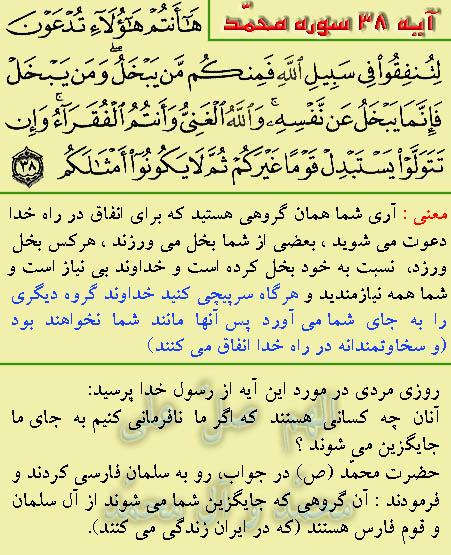 آیه ۳۸ سوره محمّد
هَٰٓأَنتُمْ هَٰٓؤُلَآءِ تُدْعَوْنَ
لِتُنفِقُوا۟ فِى سَبِيلِ ٱللَّهِ فَمِنكُم مَّن يَبْخَلُ ۖ وَمَن يَبْخَلْ
فَإِنَّمَا يَبْخَلُ عَن نَّفْسِهِۦ ۚ وَٱللَّهُ ٱلْغَنِىُّ وَأَنتُمُ ٱلْفُقَرَآءُ ۚ وَإِن
تَتَوَلَّوْا۟ يَسْتَبْدِلْ قَوْمًا غَيْرَكُمْ ثُمَّ لَا يَكُونُوٓا۟ أَمْثَٰلَكُم ۳۸
معنی : آری شما همان گروهی هستید که برای انفاق در راه خدا
دعوت می شوید ، بعضی از شما بخل می ورزند ، هرکس بخل
ورزد، نسبت به خود بخل کرده است و خداوند بی نیاز است و
شما همه نیازمندید و هرگاه سرپیچی کنید خداوند گروه دیگری
را به جای شما می آورد پس آنها مانند شما نخواهند بود
(و سخاوتمندانه در راه خدا انفاق می کنند)
روزی مردی در مورد این آیه از رسول خدا پرسید:
آنان چه کسانی هستند که اگر ما نافرمانی کنیم به جای ما
جایگزین می شوند ؟
حضرت محمّد (ص) در جواب، رو به سلمان فارسی کردند و
فرمودند : آن گروهی که جایگزین شما می شوند از آل سلمان
و قوم فارس هستند (که در ایران زندگی می کنند).
اللهم صل علی
محمد و آل محمد